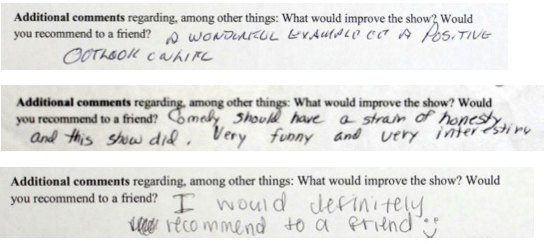 Additional comments regarding, among other things: What would improve the show? Would
you recommend to a friend? A WONDERFUL EXAMPLE OF A POSITIVE
OUTLOOK
Additional comments regarding, among other things: What would improve the show? Would
you recommend to a friend? Comedy should have a strain of honesty
and this show did. Very funny and very interesting
Additional comments regarding, among other things: What would improve the show? Would
you recommend to a friend? I would definitely
recommend to a friend :)